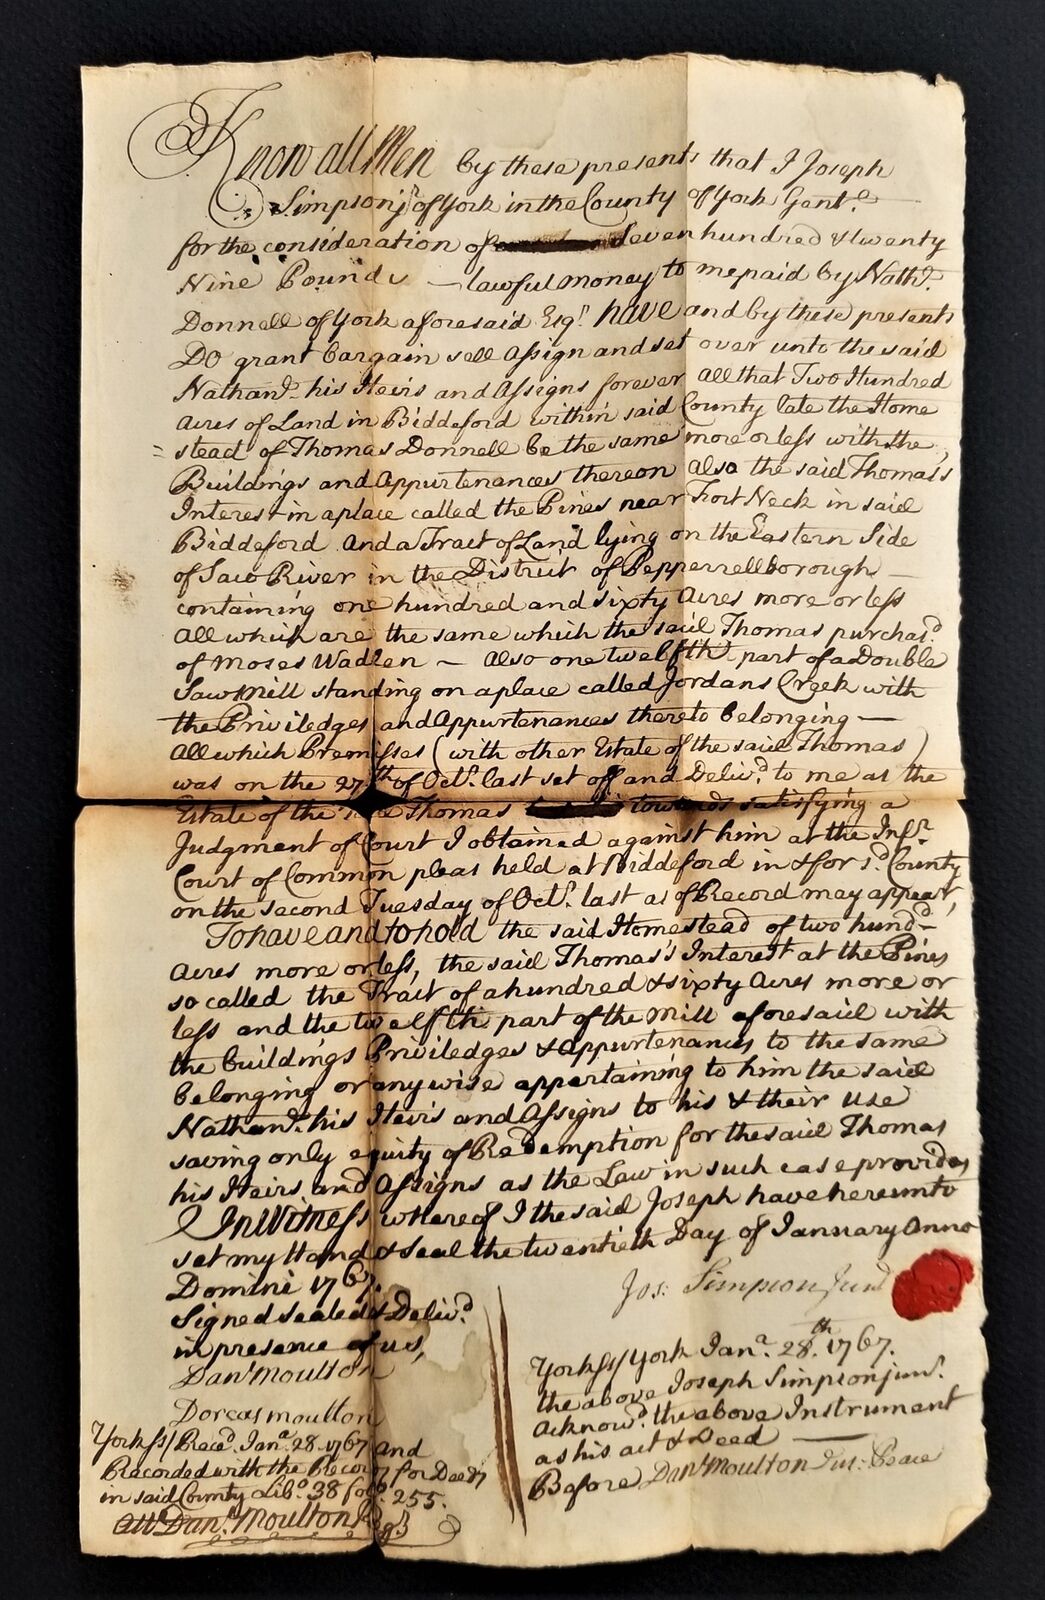 Know all Men by these presents that I Joseph
Simpson jr. of York in the County of York Gent.
for the consideration of Seven hundred & twenty
Nine Pounds — lawful money to me paid by Nathl.
Donnell of York aforesaid Esqr. have and by these presents
Do grant bargain sell assign and set over unto the said
Nathanl. his Heirs and Assigns forever all that Two Hundred
acres of Land in Biddeford within said County late the Home
= stead of Thomas Donnell be the same more or less with the
Buildings and Appurtenances thereon Also the said Thomas's
Interest in a place called the Pines near Fort Neck in said
Biddeford And a Tract of Land lying on the Eastern Side
of Saco River in the District of Pepperrellborough —
containing one hundred and sixty Acres more or less
All which are the same which the said Thomas purchasd.
of Moses Wadlen — Also one twelfth part of a Double
Saw Mill standing on a place called Jordans Creek with
the Priviledges and Appurtenances thereto belonging —
All which Premisses (with other Estate of the said Thomas)
was on the 27th of Octr. last set off and Delivd. to me as the
Estate of the Thomas towards satisfying a
Judgment of Court I obtained against him at the Infr.
Court of Common pleas held at Biddeford in & for sd. County
on the second Tuesday of Octr. last as of Record may appear,
To have and to hold the said Homestead of two hundd. —
Acres more or less, the said Thomas's Interest at the Pines
so called the Tract of a hundred & sixty Acres more or
less and the twelfth part of the Mill aforesaid with
the buildings Priviledges & Appurtenances to the same
belonging or any wise appertaining to him the said
Nathanl. his Heirs and Assigns to his & their use
saving only equity of Redemption for the said Thomas
his Heirs and Assigns as the Law in such case provides
In Witness whereof I the said Joseph have hereunto
set my Hand & Seal the twentieth Day of January Anno
Domini 1767.
Jos: Simpson Junr
Signed sealed & Delivd.
in presence of us,
Danl Moulton
Dorcas moulton
York ss/ Recd. Jana. 28. 1767 and
Recorded with the Records for Deeds
in said County Libo. 38 folo. 255.
Attr Danl. Moulton Regr
York ss/ York Jana. 28th. 1767.
the above Joseph Simpson junr.
Acknowd. the above Instrument
as his act & Deed —
Before Danl Moulton Jus: Peace